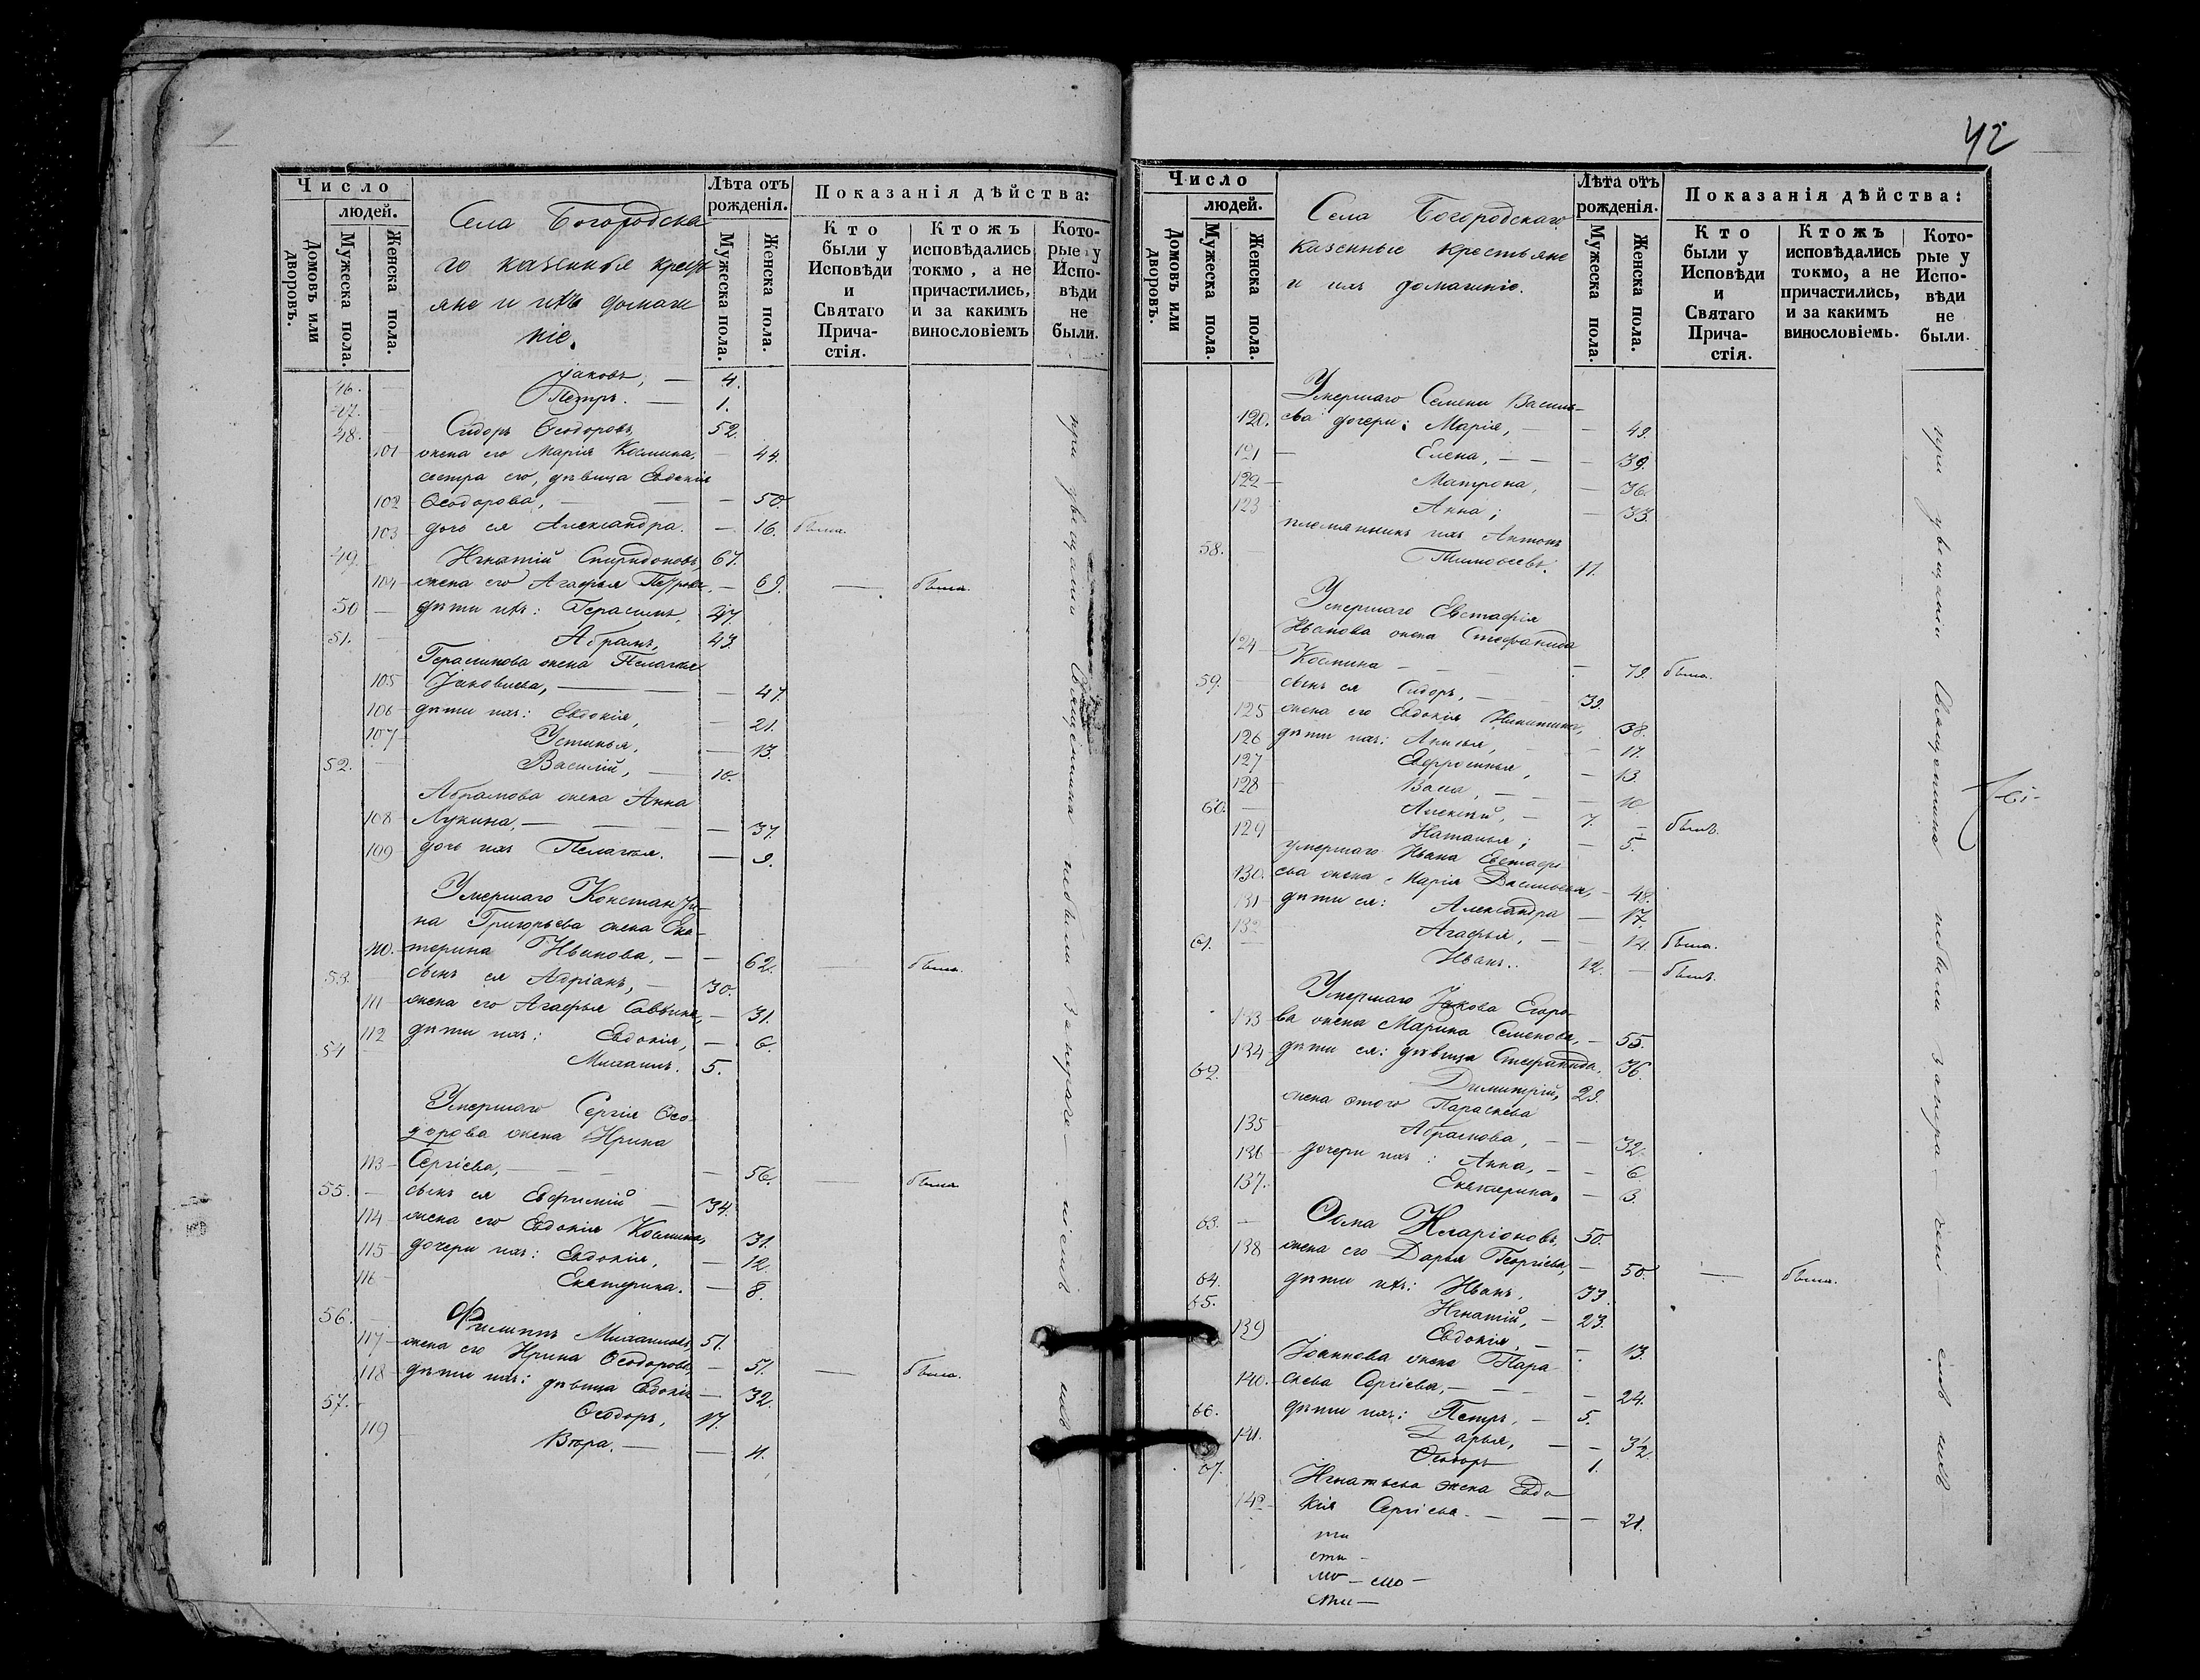 Число
людей.
Домовъ или дворовъ.
Мужеска пола.
Женска пола.
Села Богородска
го казенные крест
яне и ихъ домаш
ніе.
Лѣта отъ
рожденія.
Мужеска пола.
Женска пола.
Показанія дѣйства:
Кто
были у
Исповѣди
и
Святаго
Прича-
стія.
Ктожъ
исповѣдались
токмо, а не
причастились,
и за какимъ
винословіемъ
Кото-
рые у
Испо-
вѣди
не
были.
46. Іаковъ, — 4.
47. Петръ. — 1.
48. Сидоръ Ѳеодоровъ, 52.
101 жена его Марія Космина, — 44.
сестра его, дѣвица Евдокія
102 Ѳеодорова, — 50.
103 дочь ея Александра. — 16. была.
49. Игнатій Спиридоновъ, 67.
104 жена его Агафья Петрова, — 69. — была.
50 — дѣти ихъ: Герасимъ, 47.
51. Абрамъ, 43.
Герасимова жена Пелагья
105 Іаковлева, — 47.
106 дѣти ихъ: Евдокія, — 21.
107 Устинья, — 13.
52. Василій, — 10.
Абрамова жена Анна
108 Лукина, — 37.
109 дочь ихъ Пелагья. — 9.
Умершаго Константи-
на Григорьева жена Ека-
110. терина Иванова, — 62. — была.
53. сынъ ея Адріанъ, — 30.
111 жена его Агафья Саввина, — 31.
112 дѣти ихъ: Евдокія, — 6.
54 Михаилъ. 5.
Умершаго Сергія Ѳео-
дорова жена Ирина
113 — Сергіева, — 56. — была
55. — сынъ ея Евфимій — 34.
114 жена его Евдокія Космина, 31.
115 дочери ихъ: Евдокія, — 12.
116 Екатерина. — 8.
56. Филиппъ Михаиловъ, 51.
117 — жена его Ирина Ѳеодорова, — 51. — была.
118 — дѣти ихъ: дѣвица Евдокія — 32.
57. Ѳеодоръ, 17.
119 Вѣра. — 11.
при увещаніи Священника небыли
42
Число
людей.
Домовъ или дворовъ.
Мужеска пола.
Женска пола.
Села Богородскаго
казенные крестьяне
и ихъ домашніе.
Лѣта отъ
рожденія.
Мужеска пола.
Женска пола.
Показанія дѣйства:
Кто
были у
Исповѣди
и
Святаго
Прича-
стія.
Ктожъ
исповѣдались
токмо, а не
причастились,
и за какимъ
винословіемъ.
Кото-
рые у
Испо-
вѣди
не
были.
Умершаго Семена Василь-
120. ева дочери: Марія, — 43.
121 — Елена, — 39.
122 — Матрона, — 36.
123 Анна; — 33.
племянникъ ихъ Антонъ
58. Тимоѳеевъ. 11.
Умершаго Евстафія
Иванова жена Стефанида
124 Космина — 79. была.
59. сынъ ея Сидоръ, — 39.
125 жена его Евдокія Никитина, 38.
126 дѣти ихъ: Анисья, — 17.
127 Евфросинья, — 13.
128 Васса, — 10
60. Алексѣй, — 7. — былъ.
129 Наталья; — 5.
умершаго Ивана Евстафь-
130. ева жена Марія Васильева, — 48.
131 дѣти ея: Александра — 17.
132 Агафья, — 14. была.
61. Иванъ. 12. — былъ.
Умершаго Іакова Егоро
133 ва жена Марина Семенова, — 55.
134 дѣти ея: дѣвица Стефанида, 36.
62. Димитрій, 29.
жена этого Параскева
135 Абрамова, — 32.
136 дочери ихъ: Анна, — 6
137. Екатерина. — 3.
63. — Ѳома Иларіоновъ, 50.
138 жена его Дарья Георгіева, — 50. — была.
64. дѣти ихъ: Иванъ, 33.
65. Игнатій, — 23.
139 Евдокія, — 13.
Іоаннова жена Пара
140. скева Сергіева, — 24.
66. дѣти ихъ: Петръ, — 5.
141. Дарья, — 3½
67. Ѳеодоръ 1.
Игнатьева жена Евдо
142 кія Сергіева. — 21.
при увещаніи Священника небыли